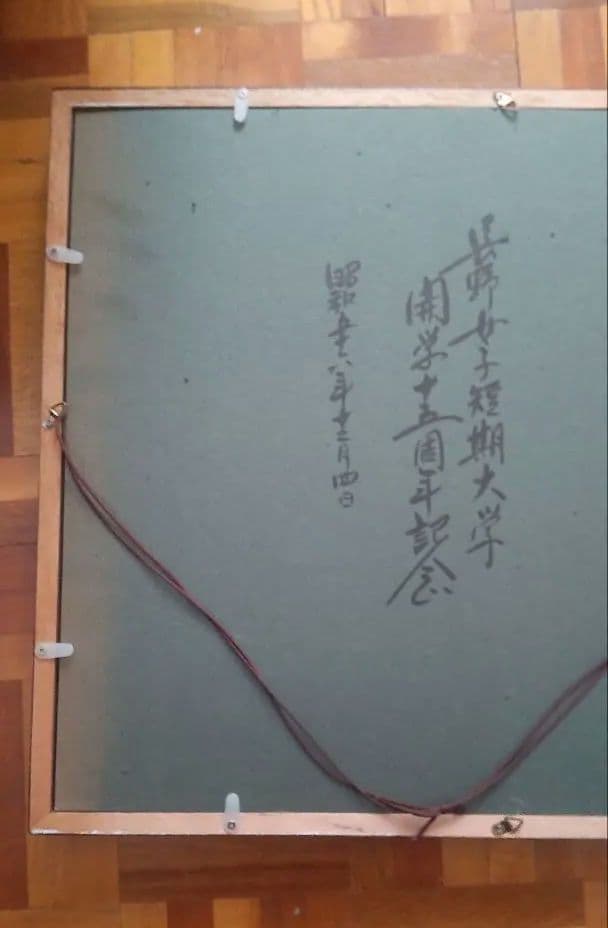 長野女子短期大学
開学十五周年記念
昭和五十六年十二月四日